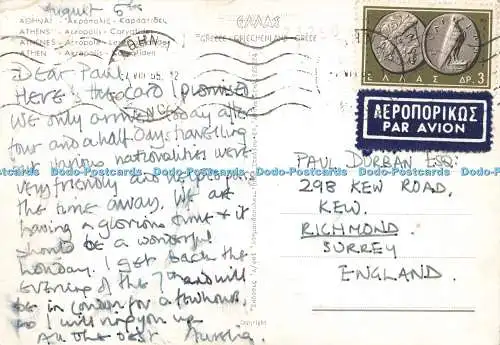 August 5th
ΑΘΗΝΑΙ - Ἀκρόπολις - Καρυάτιδες
ATHENS - Acropolis - Caryatids
ATHENES - Acropole - Les Cariatides
ATHEN - Akropolis - Karyatiden
ΕΛΛΑΣ
GREECE - GRIECHENLAND - GRÈCE
ΕΛΛΑΣ ΔΡ. 3
ΑΕΡΟΠΟΡΙΚΩΣ
PAR AVION
Dear Paul
HERE is the card I promised
We only arrived today after
four and a half Days travelling
but various nationalities were
very friendly and helped pass
the time away. We are
having a glorious time & it
should be a wonderful
holiday. I get back the
evening of the and will
be in London for a few hours,
so I will ring you up
All the best
PAUL DURBAN ESQ:
298 KEW ROAD,
KEW,
RICHMOND,
SURREY
ENGLAND.
Copyright
Dodo-Postcards Dodo-Postcards Dodo-Postcards Dodo-Postcards